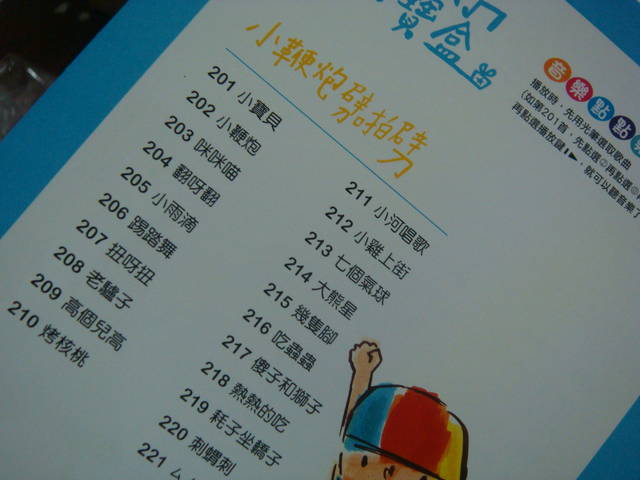 寶盒
小鞭炮劈拍劈
201 小寶貝
202 小鞭炮
203 咪咪喵
204 翻呀翻
205 小雨滴
206 踢踏舞
207 扭呀扭
208 老驢子
209 高個兒高
210 烤核桃
211 小河唱歌
212 小雞上街
213 七個氣球
214 大熊星
215 幾隻腳
216 吃蟲蟲
217 傻子和獅子
218 熱熱的吃
219 耗子坐轎子
220 刺蝟刺
221
音樂點點
播放時，先用光筆選取歌曲
(如第201首，先點選②再點選⓪
再點選播放鍵，就可以聽音樂了